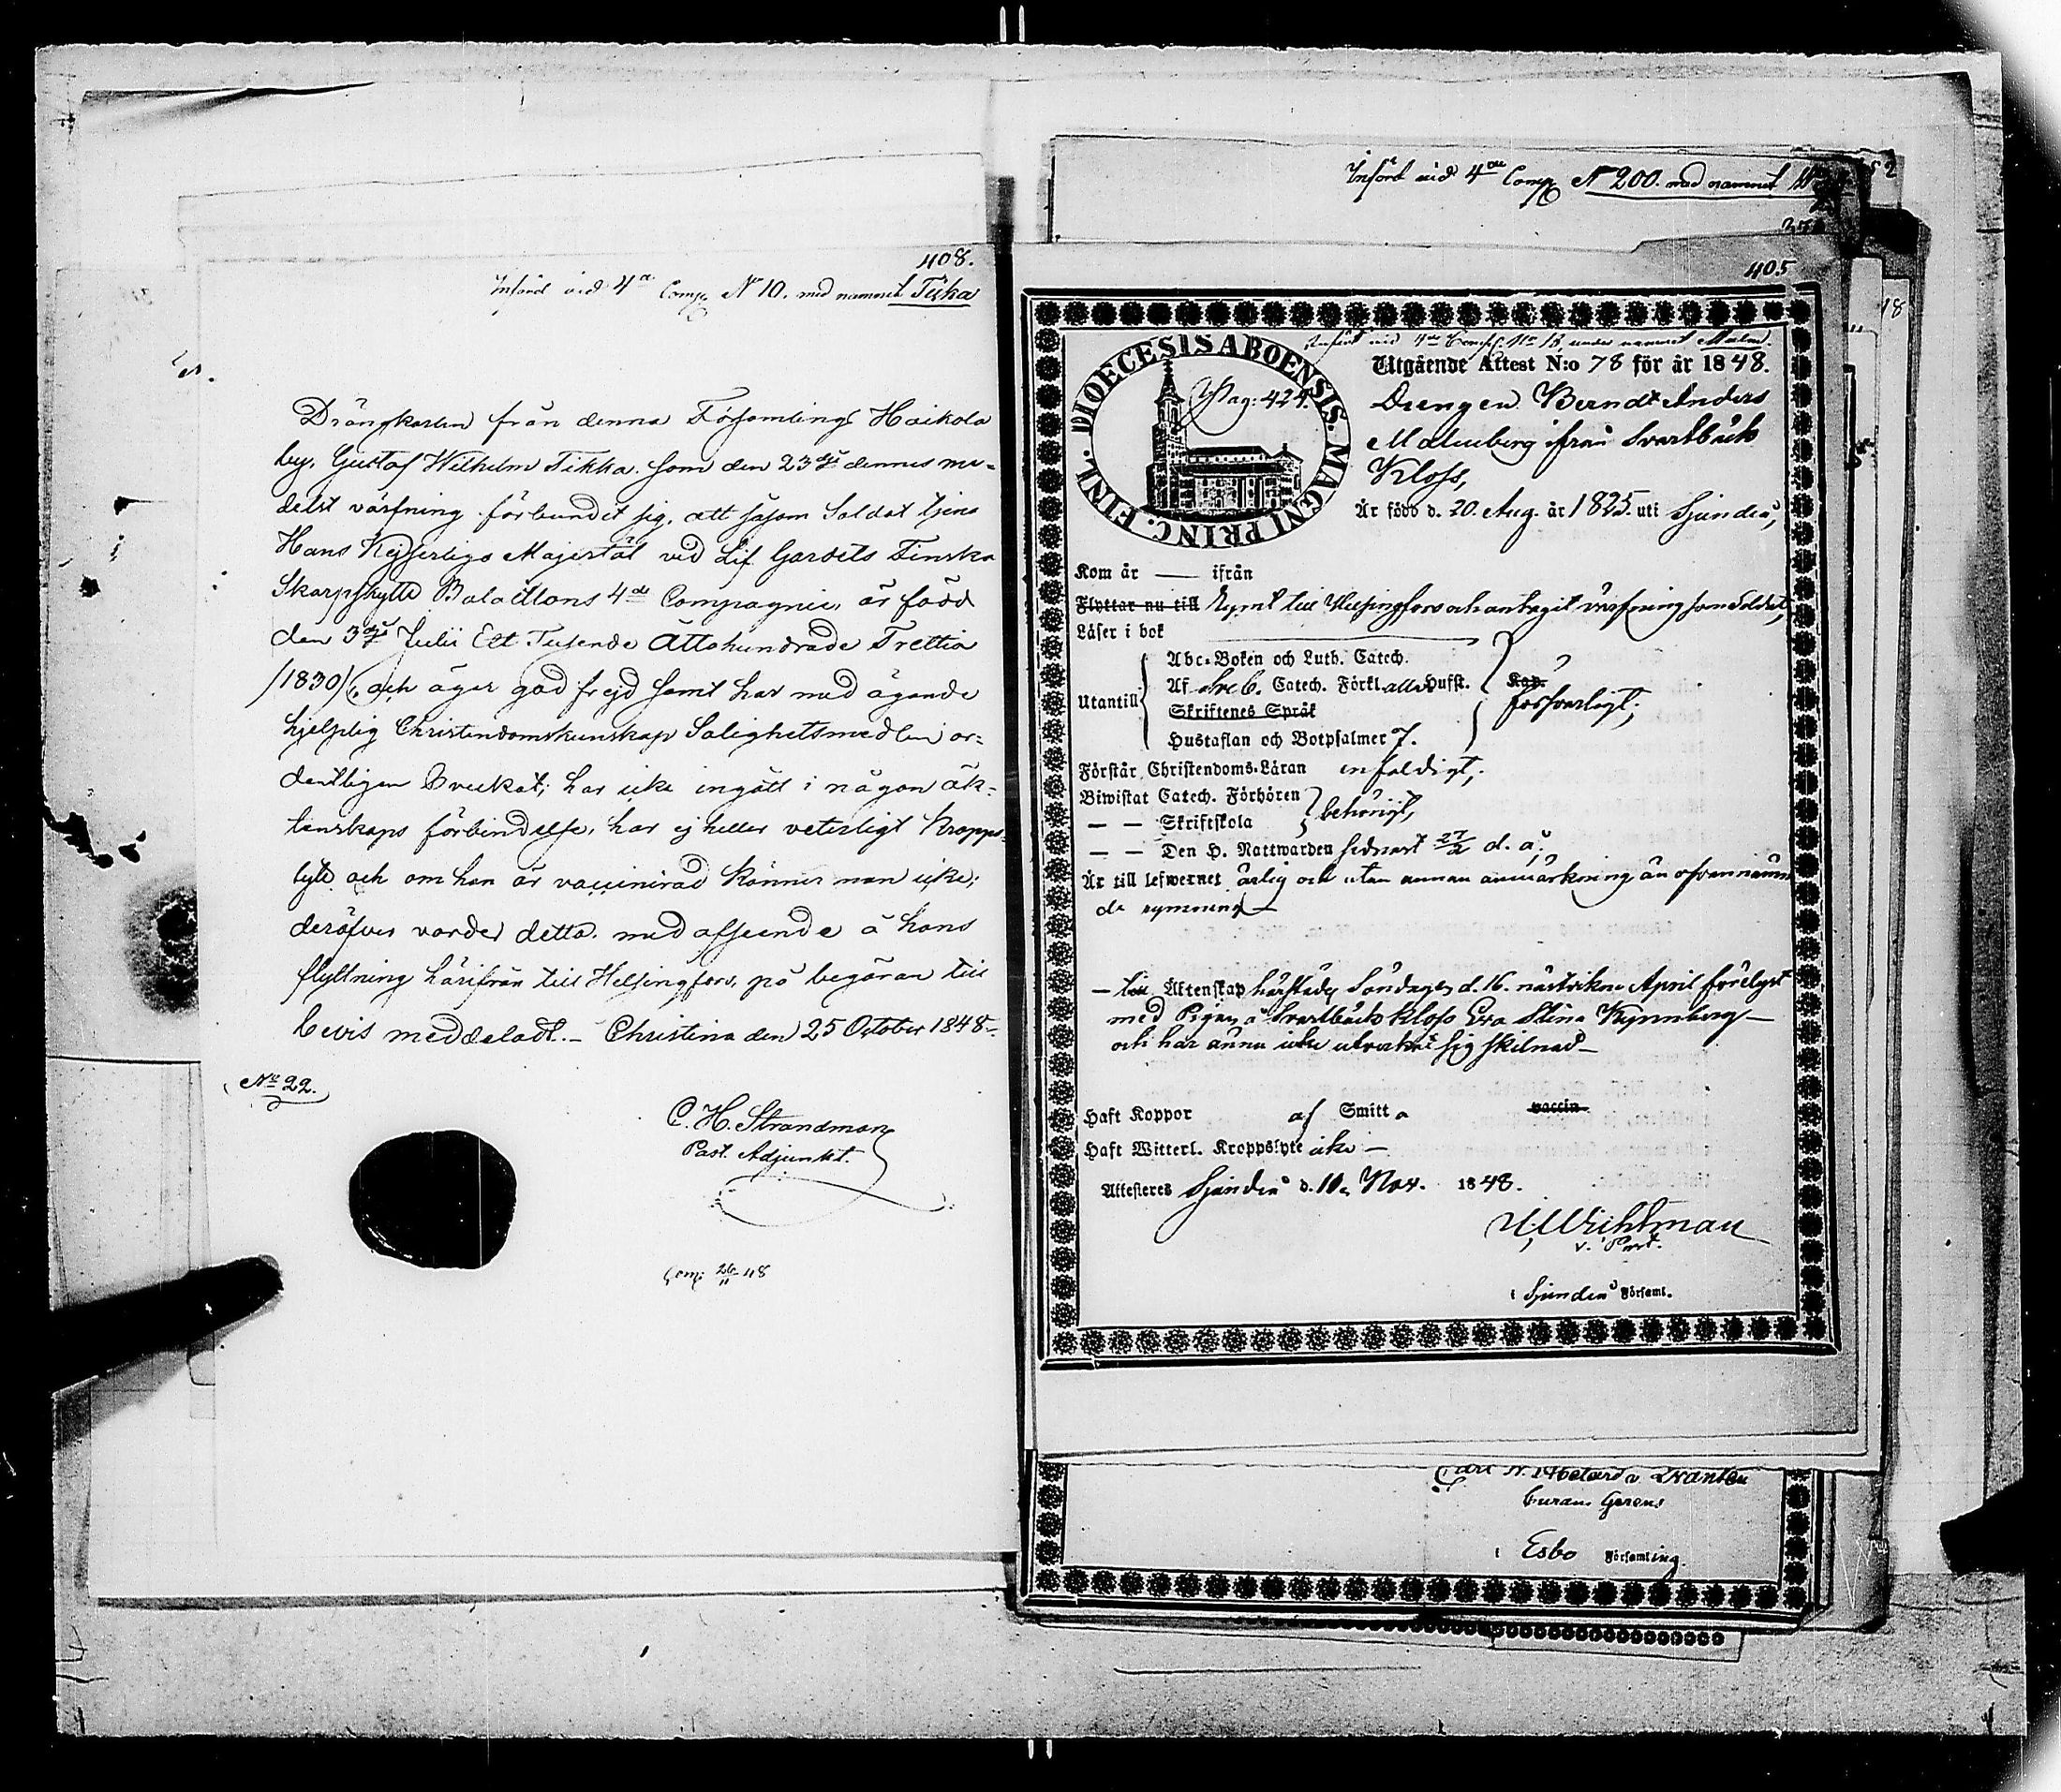 408.
Införd vid 4de Comp. N 10. med namnet Tika
Drängkarlen från denna Församlings Haikola
by, Gustaf Wilhelm Tikka, som den 23dje dennes me-
delst värfning förbundit sig, att såsom Soldat tjena
Hans Kejserliga Majestät vid Lif Gardets Finska
Skarpskytte Bataillons 4de Compagnie, är född
den 3dje Julii Ett Tusende Åttahundrade Trettio
/1830/, och äger god frejd samt har med ägande
hjelplig Christendomskunskap Salighetsmedlen or-
dentligen Bruckat; har icke ingått i någon äk-
tenskaps förbindelse, har ej heller veterligt Kropps-
lyte och om han är vaccinerad känner man icke;
deröfver varder detta, med afseende å hans
flyttning härifrån till Helsingfors, på begäran till
bevis meddeladt. – Christina den 25 October 1848.
No 22.
C. H. Strandman
Past. Adjunkt.
26/11 48
Införd vid 4de Comp. N 200. med namnet
405
Införd vid 4de Comp. No 18 under namnet Malm.
DIOECESIS ABOENSIS. MAGNI PRINC. FINL.
Pag: 424.
Utgående Attest N:o 78 för år 1848.
Drengen Berndt Anders
Malmberg ifrån Svartbäck
Kloss,
Är född d. 20. Aug. år 1825. uti Sjundeå,
Kom år — ifrån
Flyttar nu till Rymt till Helsingfors och antagit värfning som Soldat,
Läser i bok
Utantill
Abc-Boken och Luth. Catech.
Af Sveb. Catech. Förkl. alla Hufst.
Skriftenes Språk
Hustaflan och Botpsalmer 7.
Kap.
försvarligt;
Förstår Christendoms-Läran enfaldigt,
Biwistat Catech. Förhören
— — Skriftskola
behörigt,
— — Den H. Nattwarden sednast 27/2 d. å.
Är till lefwernet ärlig och utan annan anmärkning än ofvannämn
de rymning —
— till Äktenskap härstädes Söndagen d. 16. nästvikne April förelyst
med Pigan å Svartbäck Kloss Eva Stina Kynnberg —
och har ännu icke utverkat sig skilnad —
Haft Koppor af Smitta vaccin
Haft Witterl. Kroppslyte icke —
Attesteras Sjundeå d. 11. Nov. 1848.
Wichtman
v. Past.
i Sjundeå Församl.
Curam Gerens
i Esbo Församling.